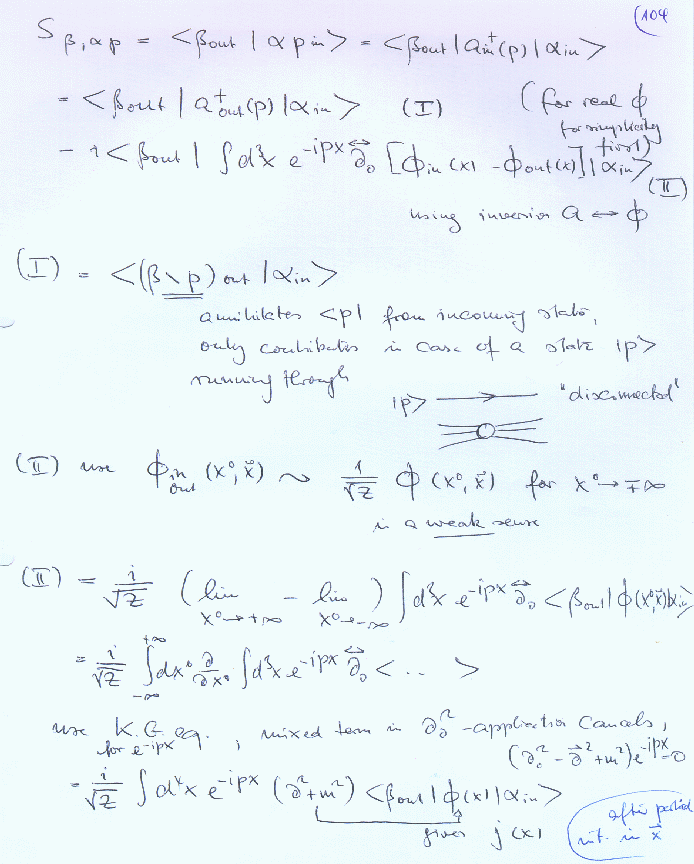 (104
S β,αp = <β out | α p in> = <β out | a†in(p) | α in>
= <β out | a†out(p) | α in> (I) (for real ϕ
for simplicity
first)
- i <β out | ∫d³x e^-ipx ∂↔₀ [ϕin(x) - ϕout(x)] | α in> (II)
using inversion a ↔ ϕ
(I) = <(β \ p) out | α in>
annihilates <p| from incoming state,
only contributes in case of a state |p>
running through
|p> "disconnected"
(II) use ϕ in out (x⁰, x⃗) ~ 1/√Z ϕ(x⁰, x⃗) for x⁰ → ∓∞
in a weak sense
(II) = i/√Z (lim x⁰→+∞ - lim x⁰→-∞) ∫d³x e^-ipx ∂↔₀ <β out | ϕ(x⁰, x⃗) | α in>
= i/√Z ∫-∞ +∞ dx⁰ ∂/∂x⁰ ∫d³x e^-ipx ∂↔₀ < .. >
use K.G. eq. for e^-ipx, mixed term in ∂₀² -application cancels,
(∂₀² - ∂⃗² + m²) e^-ipx = 0
= i/√Z ∫d⁴x e^-ipx (∂² + m²) <β out | ϕ(x) | α in>
gives j(x)
after partial
int. in x⃗